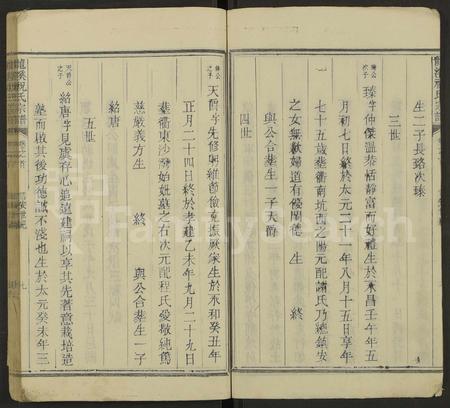 生二子長珞次臻
三世
公次子
臻字仲傑溫恭恬靜富而好禮生於永昌壬午年五
月初七日終於太元二十一年八月十五日享年
七十五歲葬衢南坑西之陽元配諸氏乃總鎮安
之女無歉婦道有優閫德 生 終
與公合葬生一子天爵
四世
臻公之子
天爵字先修明經節儉克振厥家生於永和癸丑年
正月二十四日終於孝建乙未年九月二十九日
葬衢東沙灣始妣墓之右次元配程氏愛敬純篤
慈嚴義方生 終 與公合葬生一子
紹唐
五世
天爵公之子
紹唐字見虞存心追遠建祠以享其先著意栽培造
塾而啟其後功德誠不淺也生於太元癸未年三
龍溪祝氏宗譜
卷之首
九